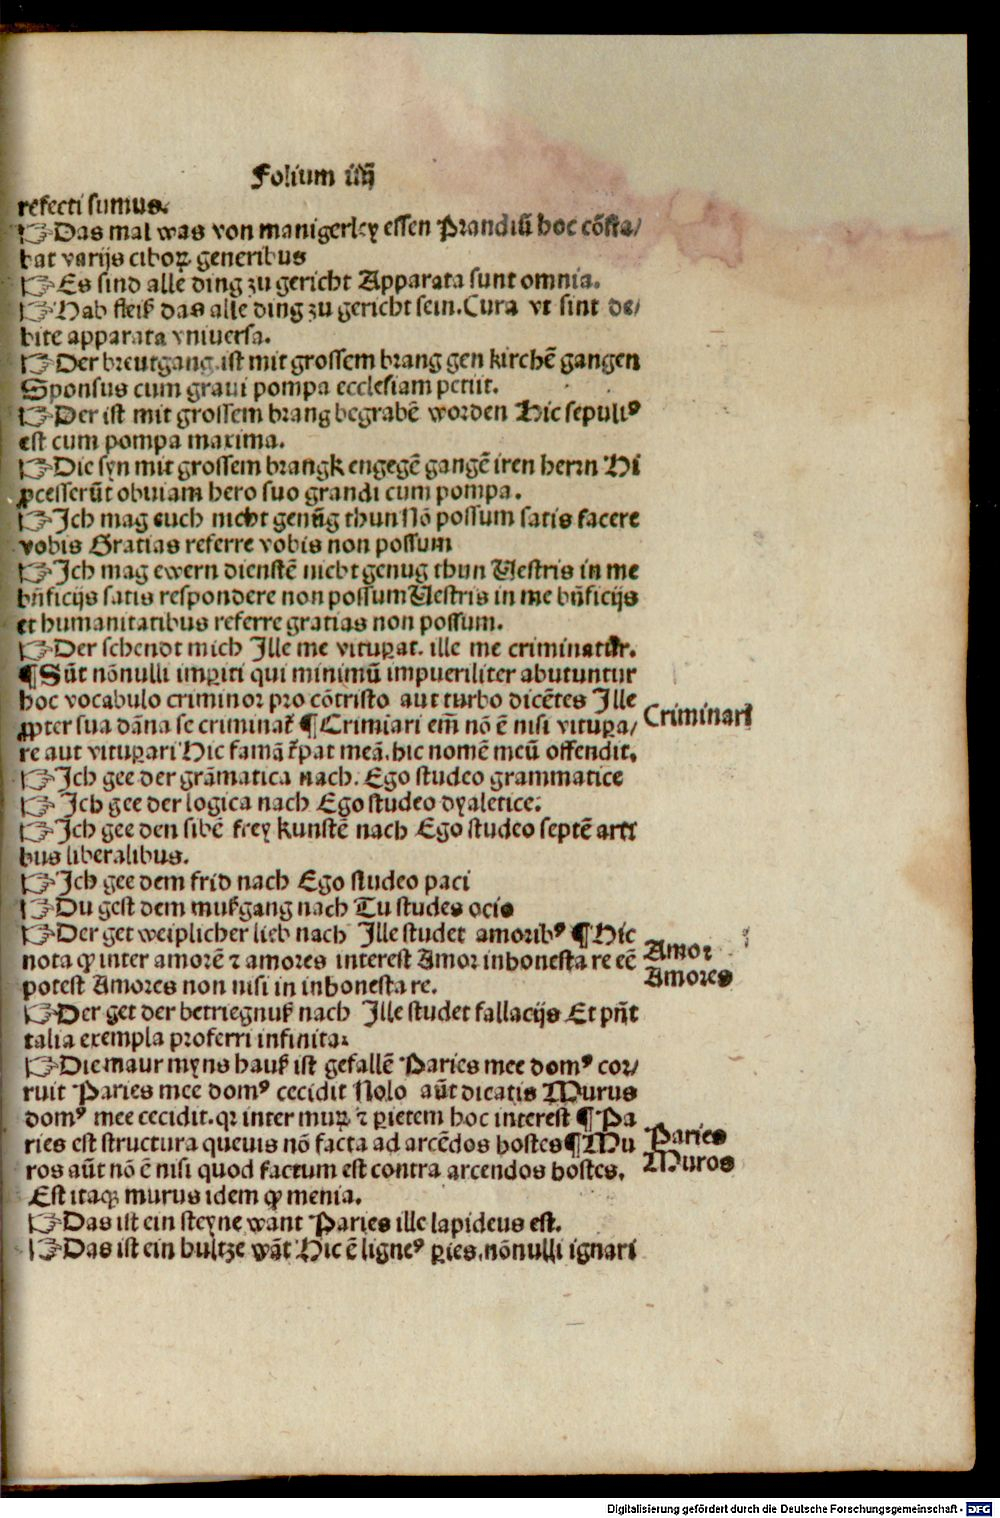 Folium iiij
refecti sumus.
☞Das mal was von manigerley essen Prandiũ hoc cõsta/
bat varijs ciboꝝ generibus
☞Es sind alle ding zu gericht Apparata sunt omnia.
☞Hab fleiß das alle ding zu gericht sein. Cura vt sint de/
bite apparata vniuersa.
☞Der breutgang ist mit grossem brang gen kirchẽ gangen
Sponsus cum graui pompa ecclesiam petiit.
☞Der ist mit grossem brang begrabẽ worden Hic sepultꝰ
est cum pompa maxima.
☞Die syn mit grossem brangk engegẽ gangẽ iren herrn Hi
ꝓcesserũt obuiam hero suo grandi cum pompa.
☞Ich mag euch nicht genũg thun Nõ possum satis facere
vobis Gratias referre vobis non possum
☞Ich mag ewern dienstẽ nicht genug thun Uestris in me
bñficijs satis respondere non possum Uestris in me bñficijs
et humanitatibus referre gratias non possum.
☞Der schendt mich Ille me vituꝑat. ille me criminatur.
¶Sũt nõnulli imꝑiti qui minimũ impueriliter abutuntur
hoc vocabulo criminor pro cõtristo aut turbo dicẽtes Ille
ꝓpter sua dãna se criminať ¶Crimiari em̃ nõ ẽ nisi vituꝑa/
re aut vituꝑari Hic famã ťpat meã. hic nomẽ meũ offendit.
Criminari
☞Ich gee der grãmatica nach. Ego studeo grammatice
☞Ich gee der logica nach Ego studeo dyaletice.
☞Ich gee den sibẽ frey kunstẽ nach Ego studeo septẽ arti
bus liberalibus.
☞Ich gee dem frid nach Ego studeo paci
☞Du gest dem mußgang nach Tu studes ocio
☞Der get weiplicher lieb nach Ille studet amoribꝰ ¶Hic
nota ꝙ inter amorẽ ⁊ amores interest Amor inhonesta re eẽ
potest Amores non nisi in inhonesta re.
Amor
Amores
☞Der get der betriegnuß nach Ille studet fallacijs Et pñt
talia exempla proferri infinita.
☞Die maur myns hauß ist gefallẽ Paries mee domꝰ cor/
ruit Paries mee domꝰ cecidit Nolo aũt dicatis Murus
domꝰ mee cecidit. qꝛ inter muꝝ ⁊ ꝑietem hoc interest ¶Pa
ries est structura queuis nõ facta ad arcẽdos hostes ¶Mu
ros aũt nõ ẽ nisi quod factum est contra arcendos hostes.
Paries
Muros
Est itaqꝫ murus idem ꝙ menia.
☞Das ist ein steyne want Paries ille lapideus est.
☞Das ist ein hultze wãt Hic ẽ ligneꝰ ꝑies. nõnulli ignari
Digitalisierung gefördert durch die Deutsche Forschungsgemeinschaft - DFG